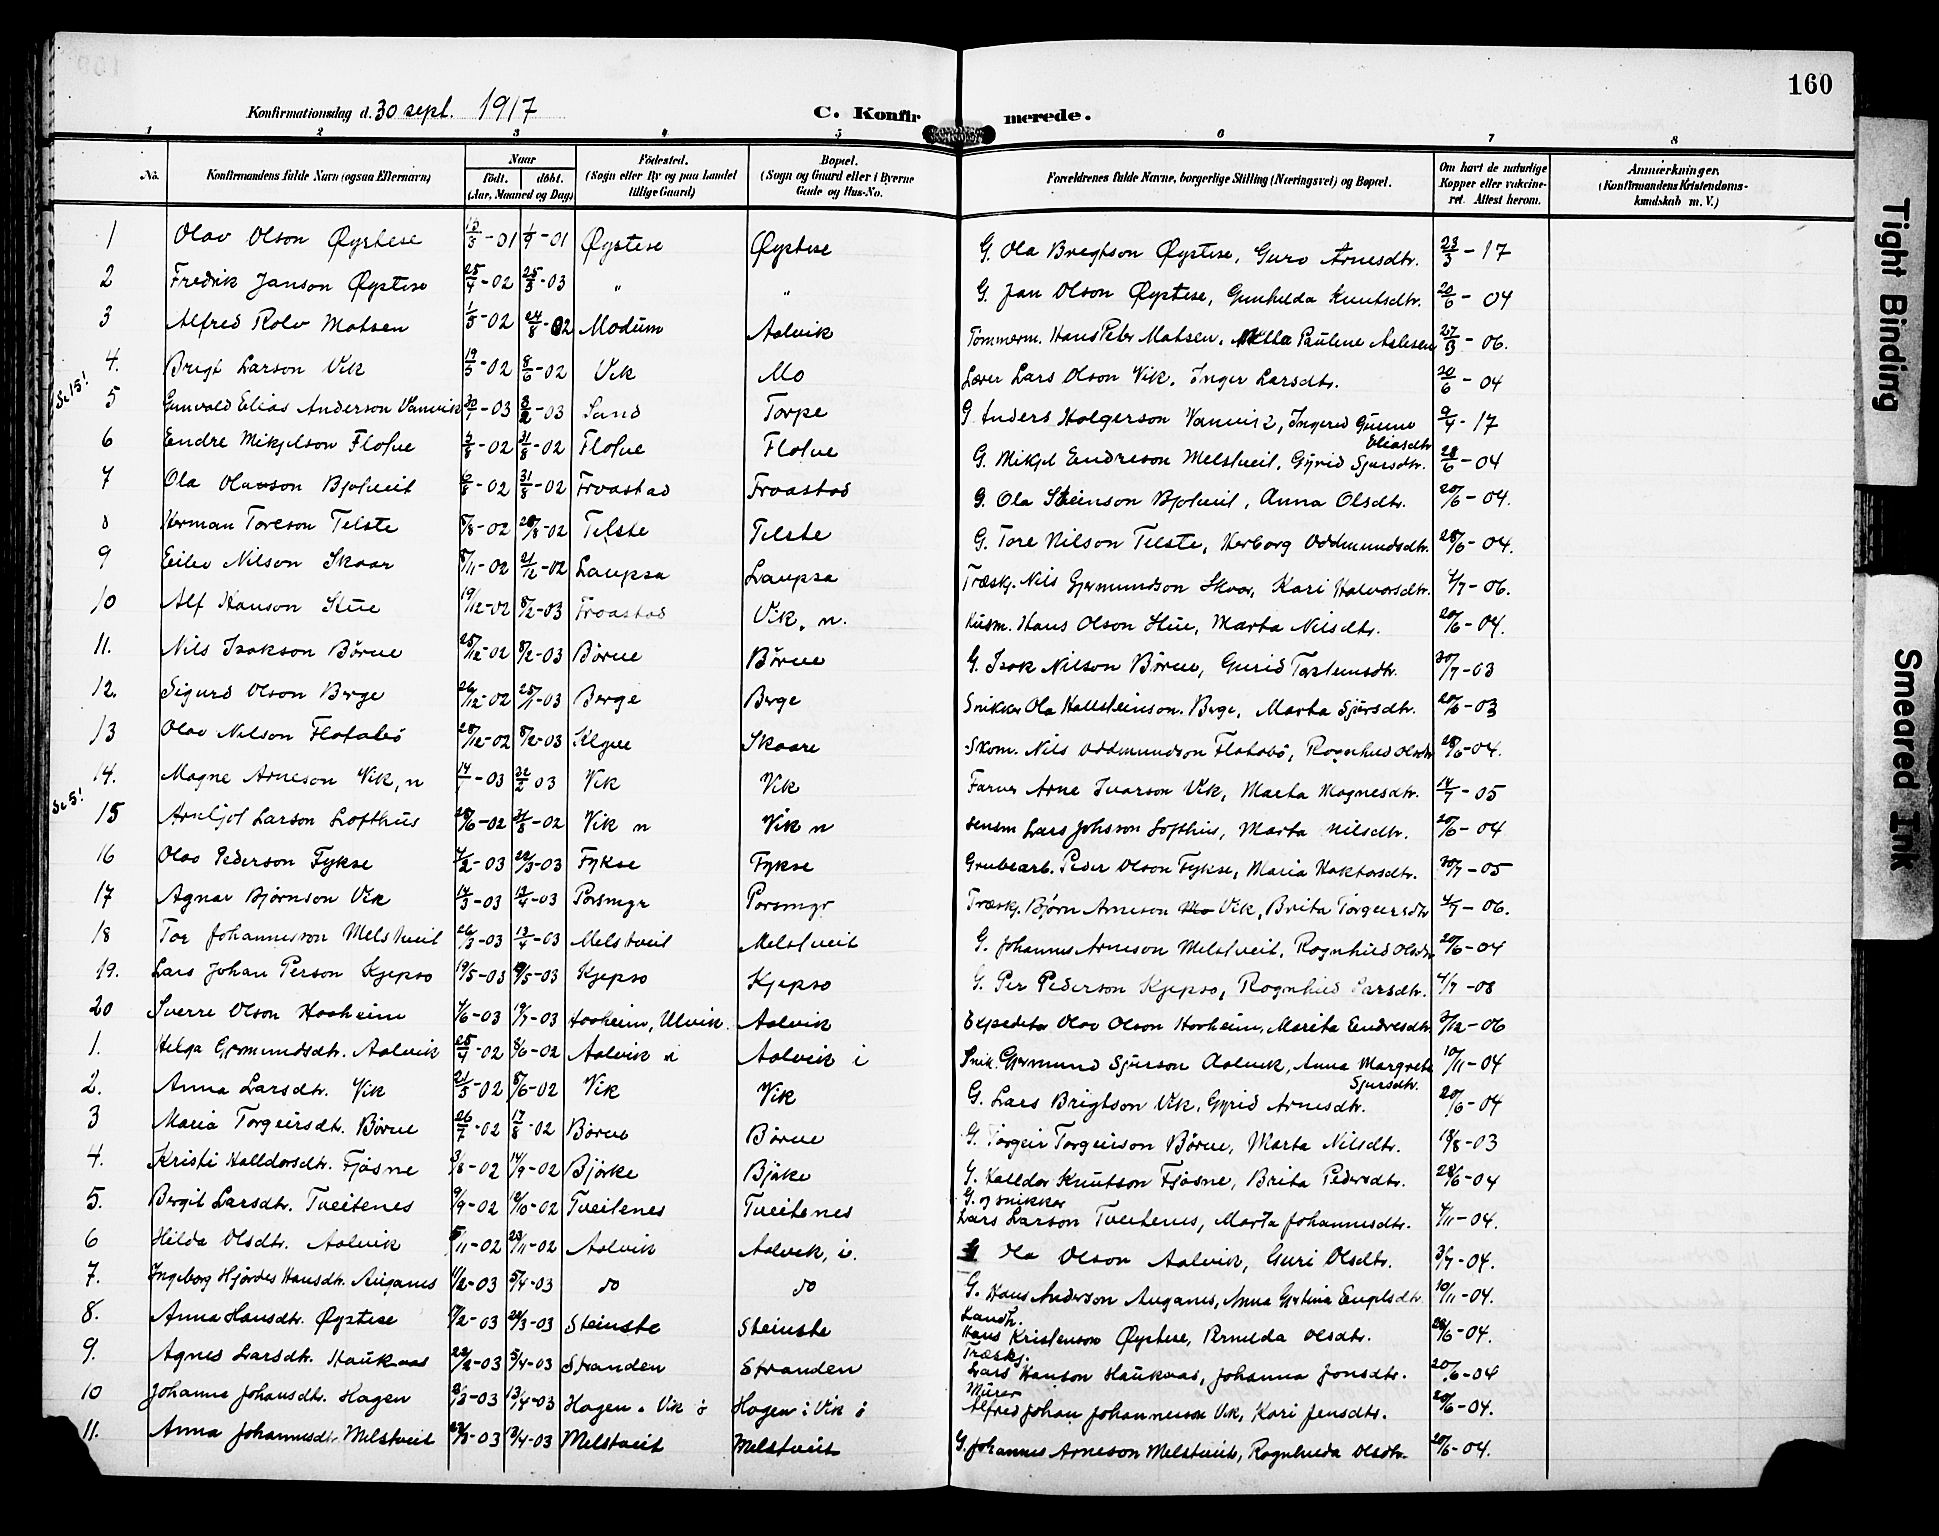 160
Konfirmationsdag d. 30 sept. 1917 C. Konfirmerede.
1 2 3 4 5 6 7 8
No. Konfirmandens fulde Navn (ogsaa Efternavn) Naar født. døbt. (Aar, Maaned og Dag) Fødested. (Sogn eller By og paa Landet tillige Gaard) Bopæl. (Sogn og Gaard eller i Byerne Gade og Hus-No. Forældrenes fulde Navne, borgerlige Stilling (Næringsvei) og Bopæl. Om havt de naturlige Kopper eller vakcineret. Attest herom. Anmærkninger. (Konfirmandens Kristendomskundskab m. V.)
1 Olav Olson Øystese 13/3-01 1/9-01 Øystese Øystese G. Ola Bregtson Øystese, Guro Arnesdtr. 23/3-17
2 Fredrik Janson Øystese 25/4-02 25/3-03 " " G. Jan Olson Øystese, Gunhilda Knutsdtr. 20/6-04
3 Alfred Rolv Matsen 1/5-02 24/8-02 Modum Aalvik Tømmerm. Hans Peter Matsen, Paulene Aslesen 27/3-06.
4. Brigt Larson Vik 19/5-02 8/6-02 Vik Mo Lærer Lars Olson Vik, Inger Larsdtr. 20/6-04
Se 15!
5 Gunvald Elias Anderson Vamvik 30/1-03 8/2-03 Sand Torpe G Anders Holgerson Vamvik, Ingerid Gurine Eliasdtr 9/4-17
6 Endre Mikjelson Flotve 3/8-02 31/8-02 Flotve Flotve G. Mikjel Endreson Melstveit, Gyrid Sjursdtr. 28/6-04
7 Ola Olason Bjotveit 6/8-02 31/8-02 Froastad Froastad G. Ola Steinson Bjotveit, Anna Olsdtr. 20/6-04.
8 Herman Toreson Telste 5/8-02 28/8-02 Telste Telste G. Tore Nilson Telste, Herborg Oddmundsdtr. 28/6-04.
9 Eilev Nilson Skaar 8/11-02 21/12-02 Laupsa Laupsa Træskj. Nils Gjermundson Skaar, Kari Halvorsdtr. 4/7-06.
10 Alf Hanson Stue 19/12-02 8/2-03 Froastad Vik, n. Husm. Hans Olson Stue, Marta Nilsdtr. 20/6-04.
11. Nils Isakson Børve 25/12-02 8/2-03 Børve Børve G. Isak Nilson Børve, Gurid Torsteinsdtr. 30/7-03
12. Sigurd Olson Berge 26/12-02 25/1-03 Berge Berge Snikker Ola Hallsteinson Berge, Marta Sjursdtr. 20/6-03
13 Olav Nilson Flotabø 28/12-02 8/2-03 Skaare Skom. Nils Oddmundson Flatabø, Rognhild Olsdtr 28/6-04.
14. Magne Arneson Vik, n 14/1-03 22/2 03 Vik Vik Farver Arne Ivarson Vik, Marta Magnesdtr. 14/7-05
Se 5!
15 Arnljot Larson Lofthus 28/6-02 31/8-02 Vik n Vik n Lars Johnson Lofthus, Marta Nilsdtr. 20/6-04
16 Olav Pederson Fykse 7/2-03 22/3-03 Fykse Fykse Grubearb. Peder Olson Fykse, Maria Haktorsdtr. 30/7-05
17 Agnar Bjørnson Vik 14/3-03 12/4-03 Porsmyr Porsmyr Træskj. Bjørn Arneson Mo Vik, Brita Torgeirsdtr 4/7-06.
18 Tor Johannesson Melstveit 26/3-03 13/4-03 Melstveit Melstveit G. Johannes Arneson Melstveit, Rognhild Olsdtr 20/6-04
19. Lars Johan Person Kjepso 19/5-03 -03 Kjepso Kjepso G. Per Pederson Kjepso, Rognhild Larsdtr. 4/7-08
20 Sverre Olson Hooheim 4/6-03 19/7-03 Hooheim, Ulvik. Aalvik Expeditør Olav Olson Hooheim, Marita Endresdtr 3/12-06
1. Helga Germundsdtr. Aalvik 25/4-02 8/6-02 Aalvik i Aalvik i Snik. Gjermund Sjurson Aalvik, Anna Margreta Sjursdtr. 10/11-04
2. Anna Larsdtr. Vik 21/5-02 8/6-02 Vik Vik G. Lars Brigtson Vik, Gyrid Arnesdtr. 20/6-04
3 Maria Torgeirsdtr. Børve 26/7-02 17/8-02 Børve Børve G. Torgeir Torgeirson Børve, Marta Nilsdtr. 18/8-03
4. Kristi Halldorsdtr. Fjøsne 3/8-02 14/9-02 Bjørke Bjørke G. Halldor Knutson Fjøsne, Brita Pedersdtr. 28/6-04
5. Bergit Larsdtr. Tveitenes 9/9-02 19/10-02 Tveitenes Tveitenes G. og snikker Lars Larson Tveitenes, Marta Johannesdtr. 4/11-04.
6 Hilda Olsdtr. Aalvik 5/11-02 23/11-02 Aalvik Aalvik, i. G Ola Olson Aalvik, Guri Olsdtr. 3/7-04.
7. Ingeborg Hjørdes Hansdtr. Auganes 1/2-03 5/4-03 do do G. Hans Anderson Auganes, Anna Gertina Engelsdtr 10/11-04.
8. Anna Hansdtr. Øystese 17/2-03 22/3-03 Steinstø Steinstø Landh. Hans Kristenson Øystese, Pernilda Olsdtr. 28/6-04.
9. Agnes Larsdtr. Haukaas 22/2-03 5/4-03 Stranden Stranden Træskj. Lars Hanson Haukaas, Johanna Jonsdtr. 20/6-04
10 Johanna Johansdtr. Hagen 2/3-03 13/4-03 Hagen. Vik ø Hagen: Vik ø Murer Alfred Johan Johanneson Vik, Kari Jensdtr. 20/6-04.
11. Anna Johannesdtr. Melstveit 23/3-03 12/4-03 Melstveit Melstveit G. Johannes Arneson Melstveit, Rognhilda Olsdtr. 20/6-04.
Tight Binding
Smeared Ink